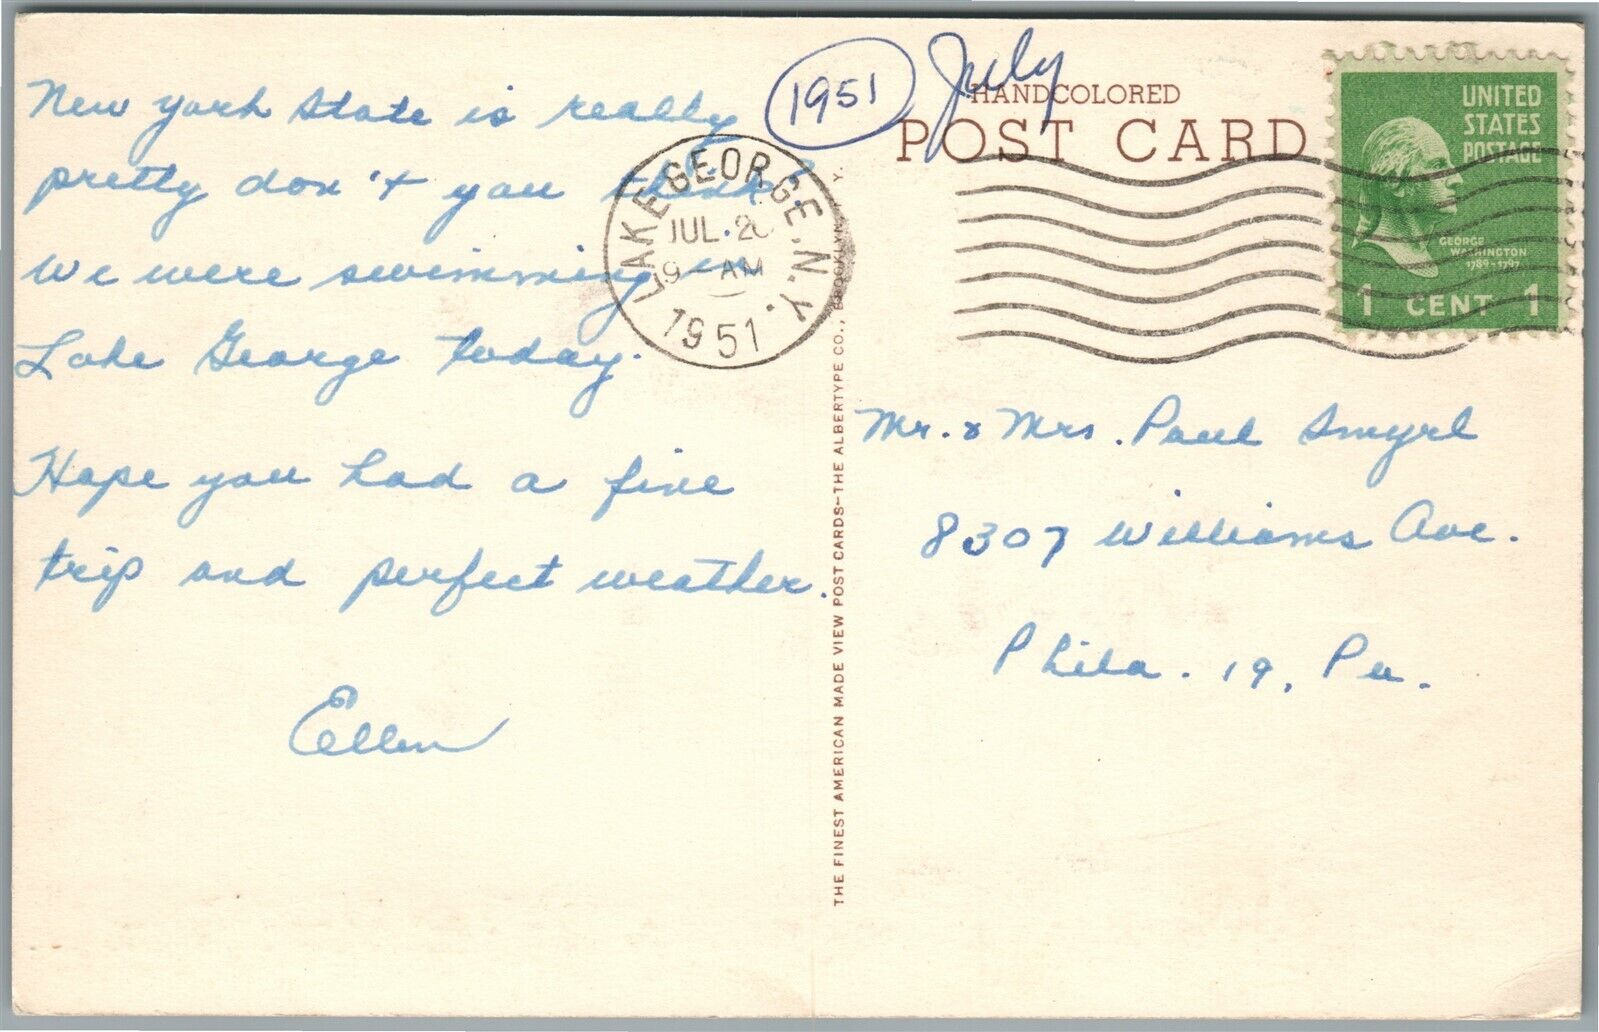 New York State is really
pretty don't you think?
We were swimming in
Lake George today.
Hope you had a fine
trip and perfect weather.
Ellen
1951 July
LAKE GEORGE, N.Y.
JUL 20
9 AM
1951
HANDCOLORED
POST CARD
UNITED
STATES
POSTAGE
GEORGE
WASHINGTON
1789-1797
1 CENT 1
THE FINEST AMERICAN MADE VIEW POST CARDS—THE ALBERTYPE CO., BROOKLYN, N. Y.
Mr. & Mrs. Paul Smyrl
8307 Williams Ave.
Phila. 19, Pa.